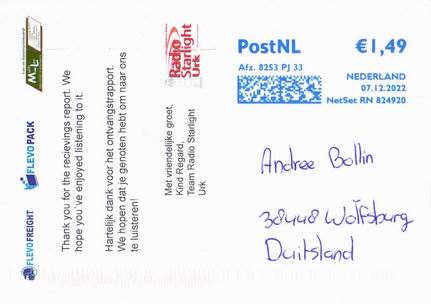 Thank you for the recievings report. We
hope you've enjoyed listening to it.
Hartelijk dank voor het ontvangstrapport.
We hopen dat je genoten hebt om naar ons
te luisteren!
Met vriendelijke groet,
Kind Regard,
Team Radio Starlight
Urk
Radio
Starlight
Urk
FLEVOFREIGHT
FLEVOPACK
PostNL €1,49
Afz. 8253 PJ 33
NEDERLAND
07.12.2022
NetSet RN 824920
Andree Bollin
38448 Wolfsburg
Duitsland